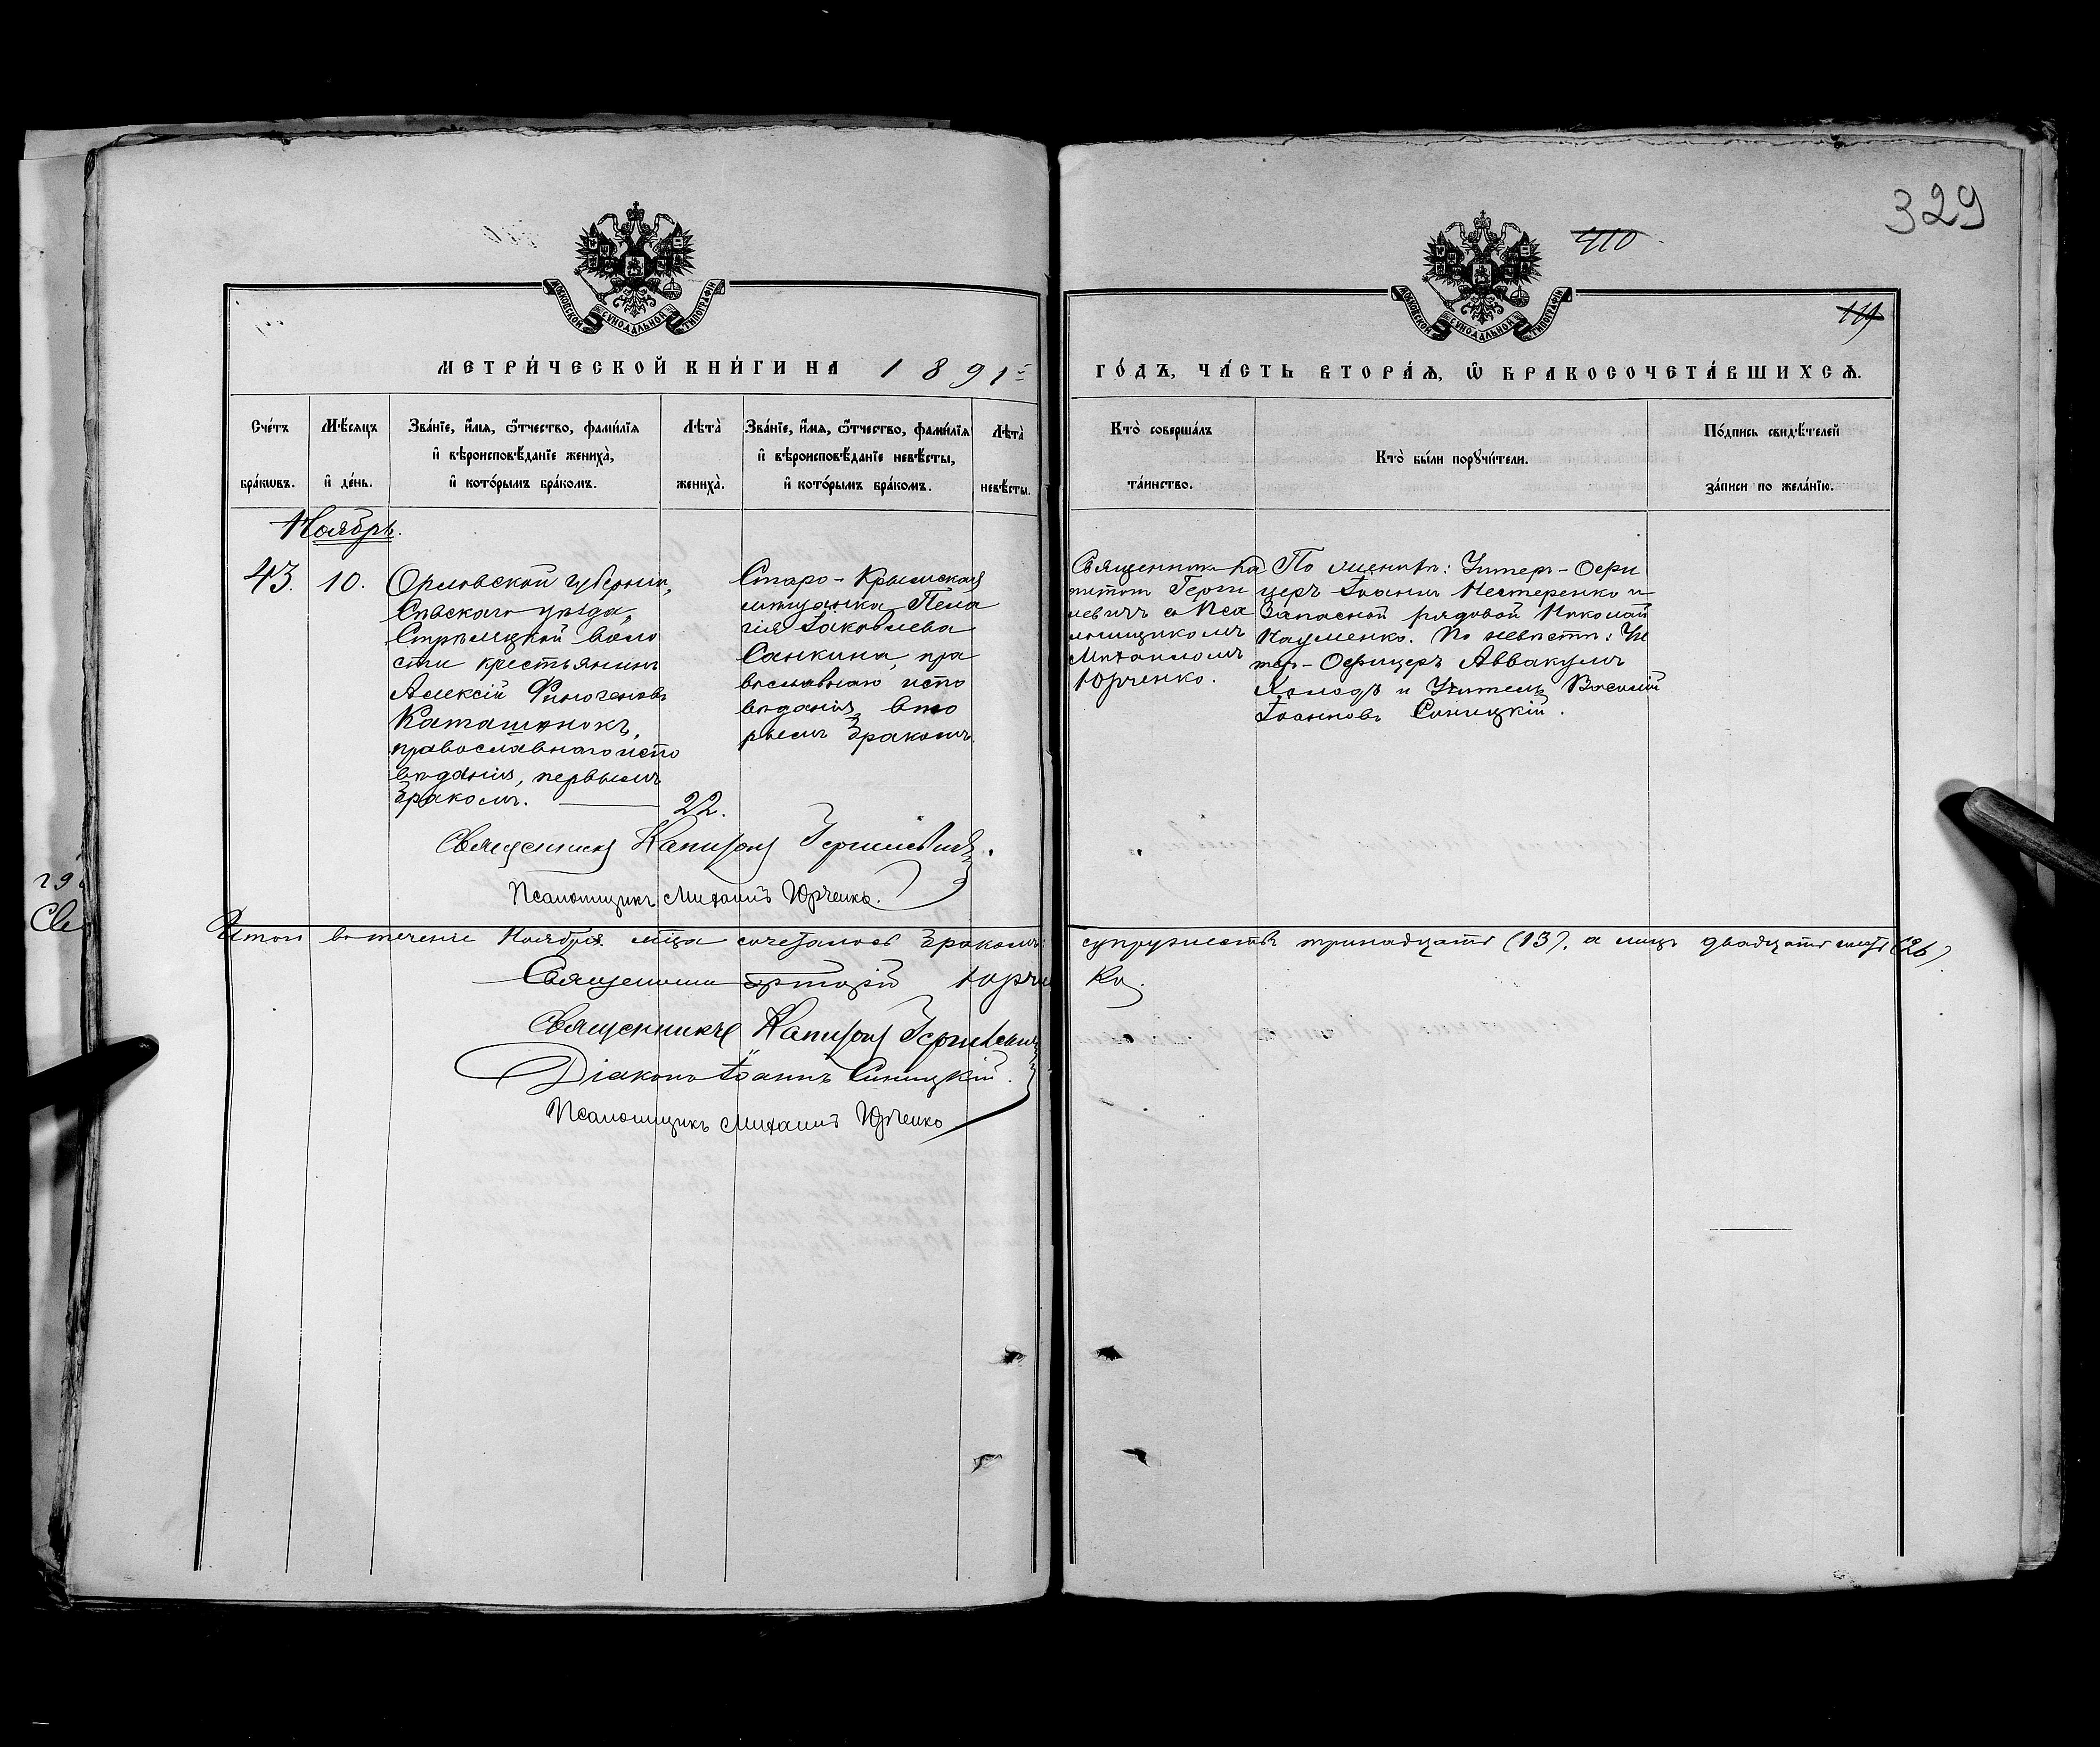 329
410
119
МОСКОВСКОЙ СѴНОДАЛЬНОЙ ТИПОГРАФІИ
МОСКОВСКОЙ СѴНОДАЛЬНОЙ ТИПОГРАФІИ
МЕТРИ́ЧЕСКОЙ КНИ́ГИ НА 1891
ГО́ДЪ, ЧА́СТЬ ВТОРА́Ѧ, Ѽ БРАКОСОЧЕТА́ВШИХСѦ.
Сче́тъ бра́кѡвъ.
Мѣ́сяцъ и҆ де́нь.
Зва́нїе, и҆́мя, ѻ҆́тчество, фами́лїя
и҆ вѣроисповѣ́данїе жениха̀,
и҆ кото́рымъ бра́комъ.
Лѣта̀ жениха̀.
Зва́нїе, и҆́мя, ѻ҆́тчество, фами́лїя
и҆ вѣроисповѣ́данїе невѣ́сты,
и҆ кото́рымъ бра́комъ.
Лѣта̀ невѣ́сты.
Кто̀ соверша́лъ
та́инство.
Кто̀ бы́ли порꙋчи́тели.
По́дпись свидѣ́телей
за́писи по жела́нїю.
Ноябрь.
43.
10.
Орловской губерніи,
Сѣвскаго уѣзда,
Стрѣлецкой воло
сти крестьянинъ
Алексій Финогеновъ
Каташонокъ,
православнаго испо
вѣданія, первымъ
бракомъ.
22.
Старо-Крымская
мѣщанка Пела
гія Іаковлева
Санкина, пра
вославнаго испо
вѣданія, вто
рымъ бракомъ.
Священникъ Ка
питонъ Герги
левичъ с Пса
ломщикомъ
Михаиломъ
Юрченко.
По женихѣ: Унтеръ-Офи
церъ Іоаннъ Нестеренко и
Запасной рядовой Николай
Науменко. По невѣстѣ: Ун
теръ-Офицеръ Аввакумъ
Холодъ и Учитель Василій
Іоанновъ Синицкій.
Священникъ Капитонъ Гергилевичъ.
Псаломщикъ Михаилъ Юрченко.
Итого въ теченіе Ноября мѣца сочеталось бракомъ: супружествъ тринадцать (13), а лицъ двадцать шесть (26).
Священникъ Юрченко
Священникъ Капитонъ Гергилевичъ
Діаконъ Іоаннъ Синицкій.
Псаломщикъ Михаилъ Юрченко